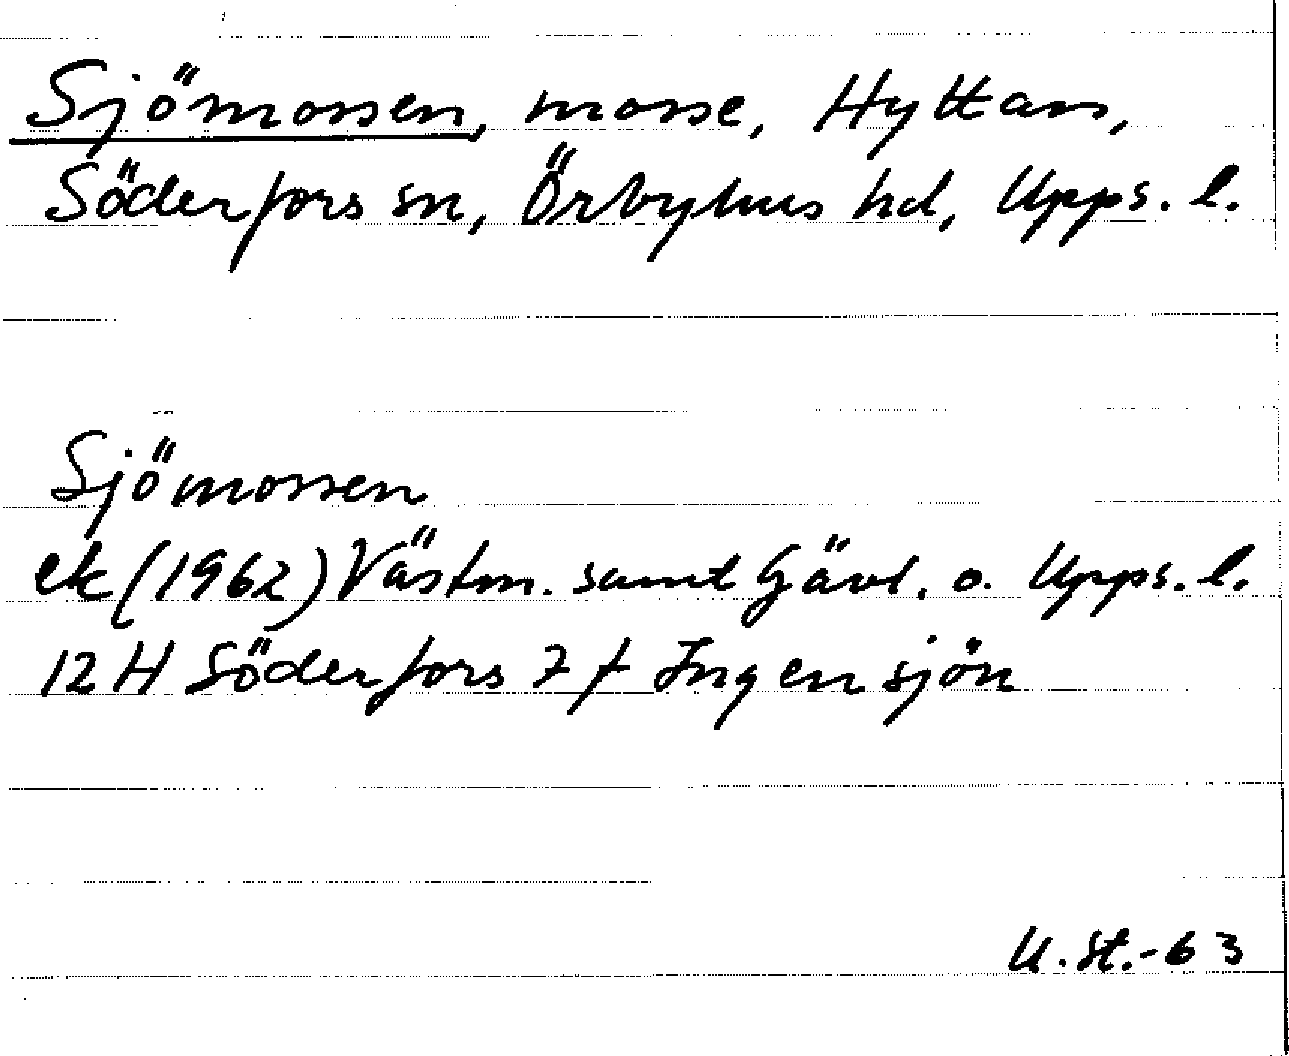 Sjömossen, mosse, Hyttan,
Söderfors sn, Örbyhus hd, Upps. l.
Sjömossen
ek (1962) Västm. samt Gävl. o. Upps. l.
12 H Söderfors 7 f Ingensjön
U. St. -63